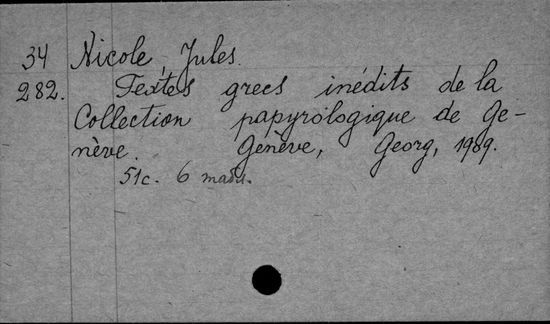 34 Nicole, Jules.
282. Textes grecs inédits de la
Collection papyrologique de Ge-
nève. Genève, Georg, 1909.
51c. 6